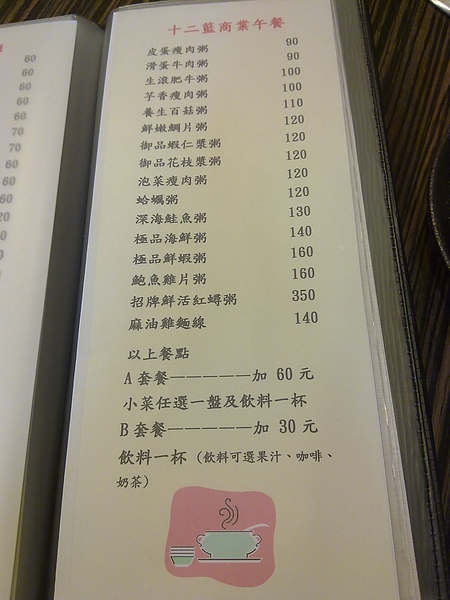 十二籃商業午餐
皮蛋瘦肉粥 90
滑蛋牛肉粥 90
生滾肥牛粥 100
芋香瘦肉粥 100
養生百菇粥 110
鮮嫩鯛片粥 120
御品蝦仁漿粥 120
御品花枝漿粥 120
泡菜瘦肉粥 120
蛤蠣粥 120
深海鮭魚粥 130
極品海鮮粥 140
極品鮮蝦粥 160
鮑魚雞片粥 160
招牌鮮活紅蟳粥 350
麻油雞麵線 140
以上餐點
A 套餐—————加 60 元
小菜任選一盤及飲料一杯
B 套餐—————加 30 元
飲料一杯 (飲料可選果汁、咖啡、
奶茶)
60
60
60
60
60
70
70
60
60
60